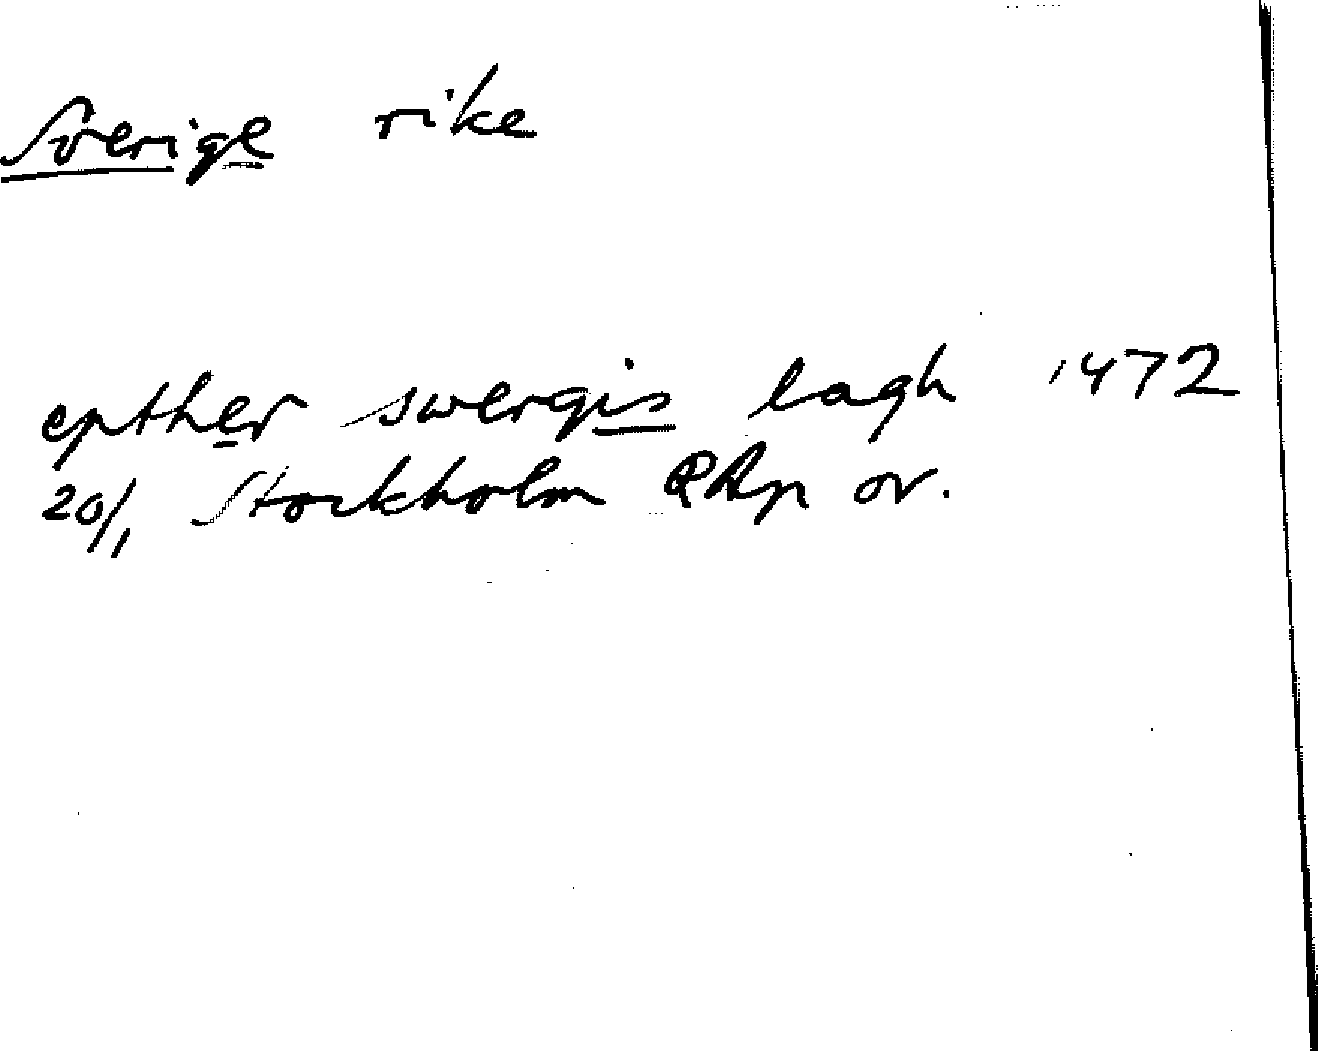 Sverige rike
epther swergis lagh 1472
20/1 Stockholm RAp or.